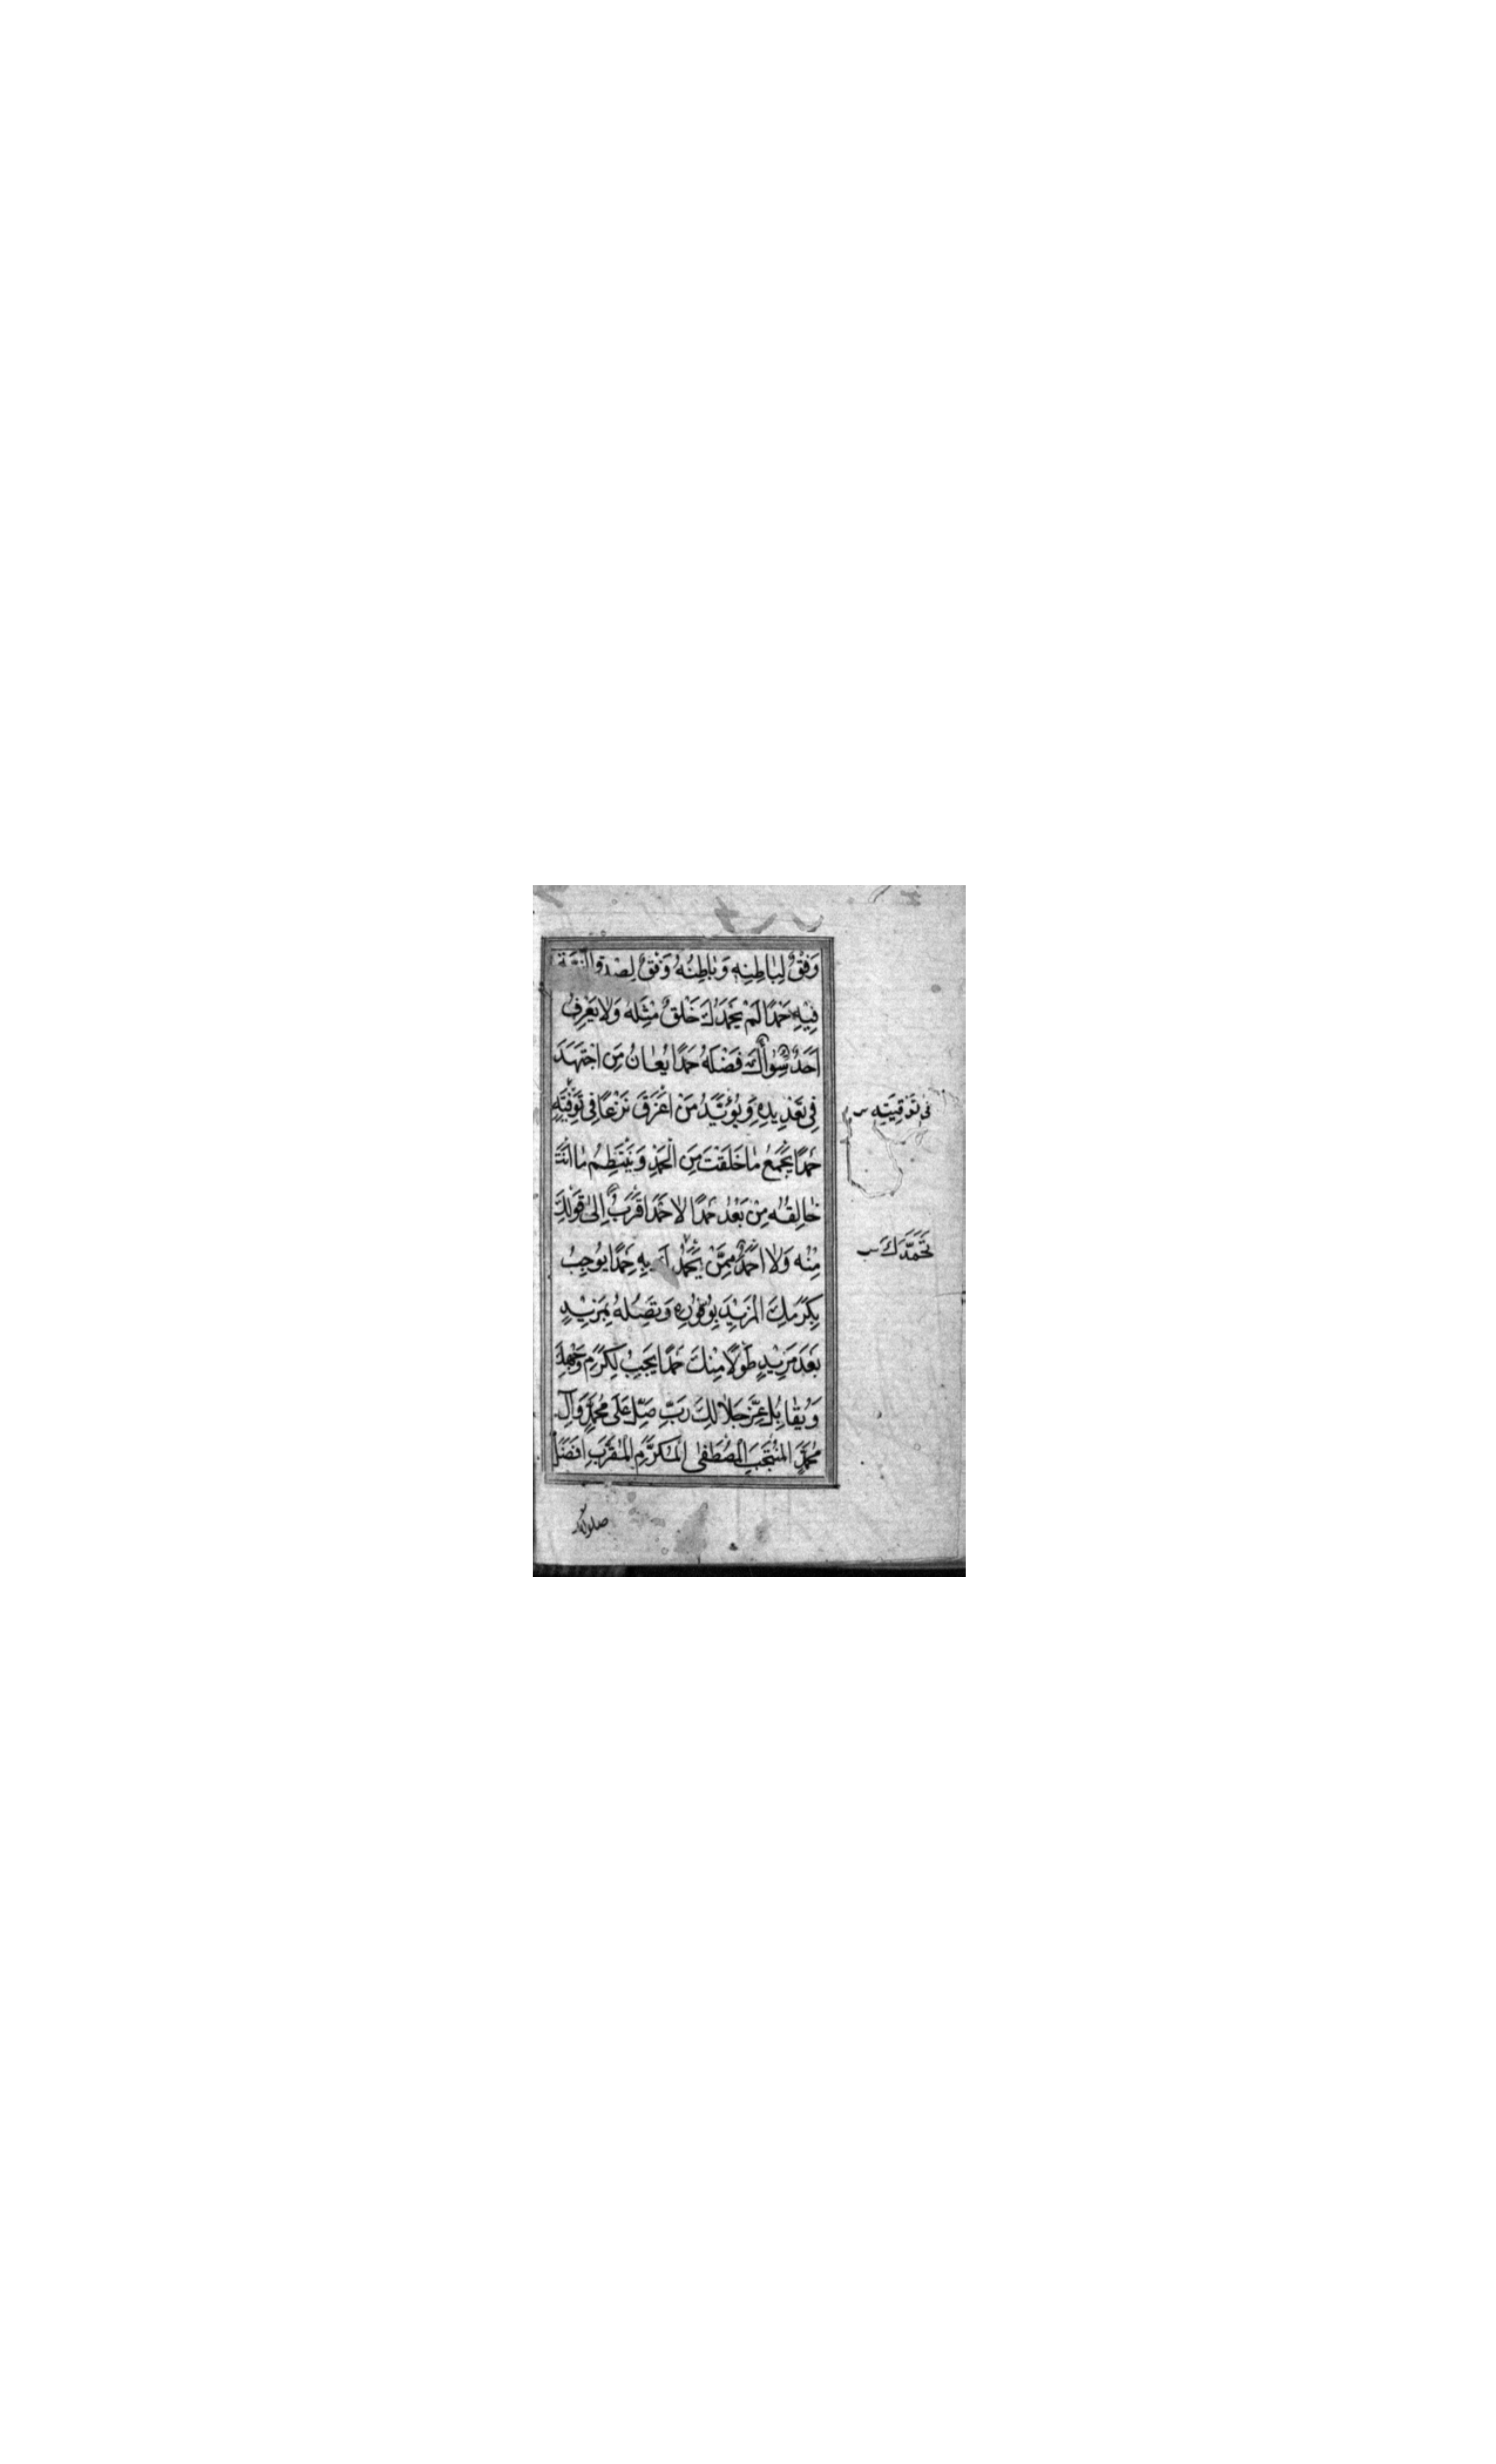 وَفْقٌ لِبَاطِنِهِ وَبَاطِنُهُ وَفْقٌ لِصِدْقِ النِّيَّةِ
فِيْهِ حَمْدًا لَمْ يَحْمَدْكَ خَلْقٌ مِثْلَهُ وَلَا يَعْرِفُ
اَحَدٌ سِوَاكَ فَضْلَهُ حَمْدًا يُعَانُ مَنِ اجْتَهَدَ
فِي تَعْدِيدِهِ وَيُؤَيَّدُ مَنْ اَغْرَقَ نَزْعًا فِي تَوْفِيَتِهِ
حَمْدًا يَجْمَعُ مَا خَلَقْتَ مِنَ الْحَمْدِ وَيَنْتَظِمُ مَا اَنْتَ
خَالِقُهُ مِنْ بَعْدُ حَمْدًا لَا حَمْدَ اَقْرَبُ اِلَى قَوْلِكَ
مِنْهُ وَلَا اَحْمَدُ مِمَّنْ يَحْمَدُ بِهِ حَمْدًا يُوجِبُ
بِكَرَمِكَ الْمَزِيْدَ بِوُفُورِهِ وَتَصِلُهُ بِمَزِيْدٍ
بَعْدَ مَزِيْدٍ طَوْلًا مِنْكَ حَمْدًا يَجِبُ لِكَرَمِ وَجْهِكَ
وَيُقَابِلُ عِزَّ جَلَالِكَ رَبِّ صَلِّ عَلَى مُحَمَّدٍ وَآلِ
مُحَمَّدٍ الْمُنْتَجَبِ الْمُصْطَفَى الْمُكَرَّمِ الْمُقَرَّبِ اَفْضَلَ
صلواتك
فِي تَوْقِيَتِهِ س
تَحَمَّدَكَ س